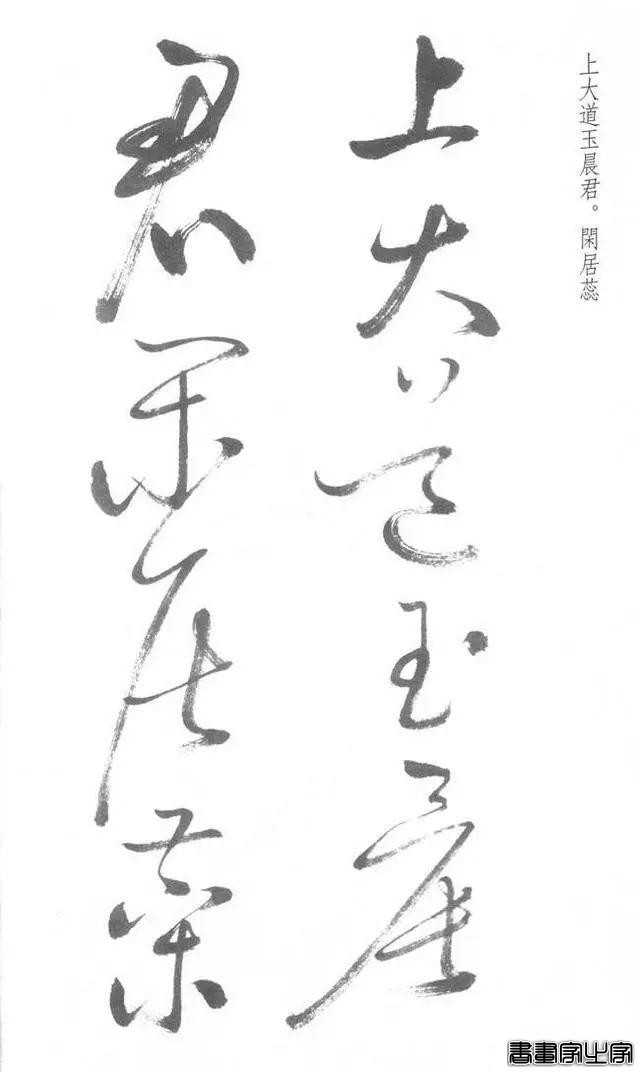 上大道玉晨君。閑居蕊
上大道玉晨
君閑居蕊
書畫家之家